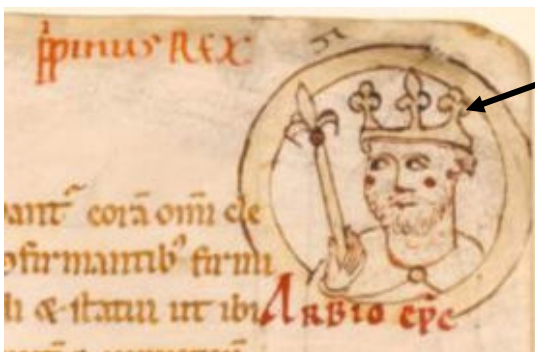 ppinus REX
ꝺant᷑ corā om̄i cle
ɔfirmantib⁹ firmi
li & statui ut ibi ARBIO ep̄c